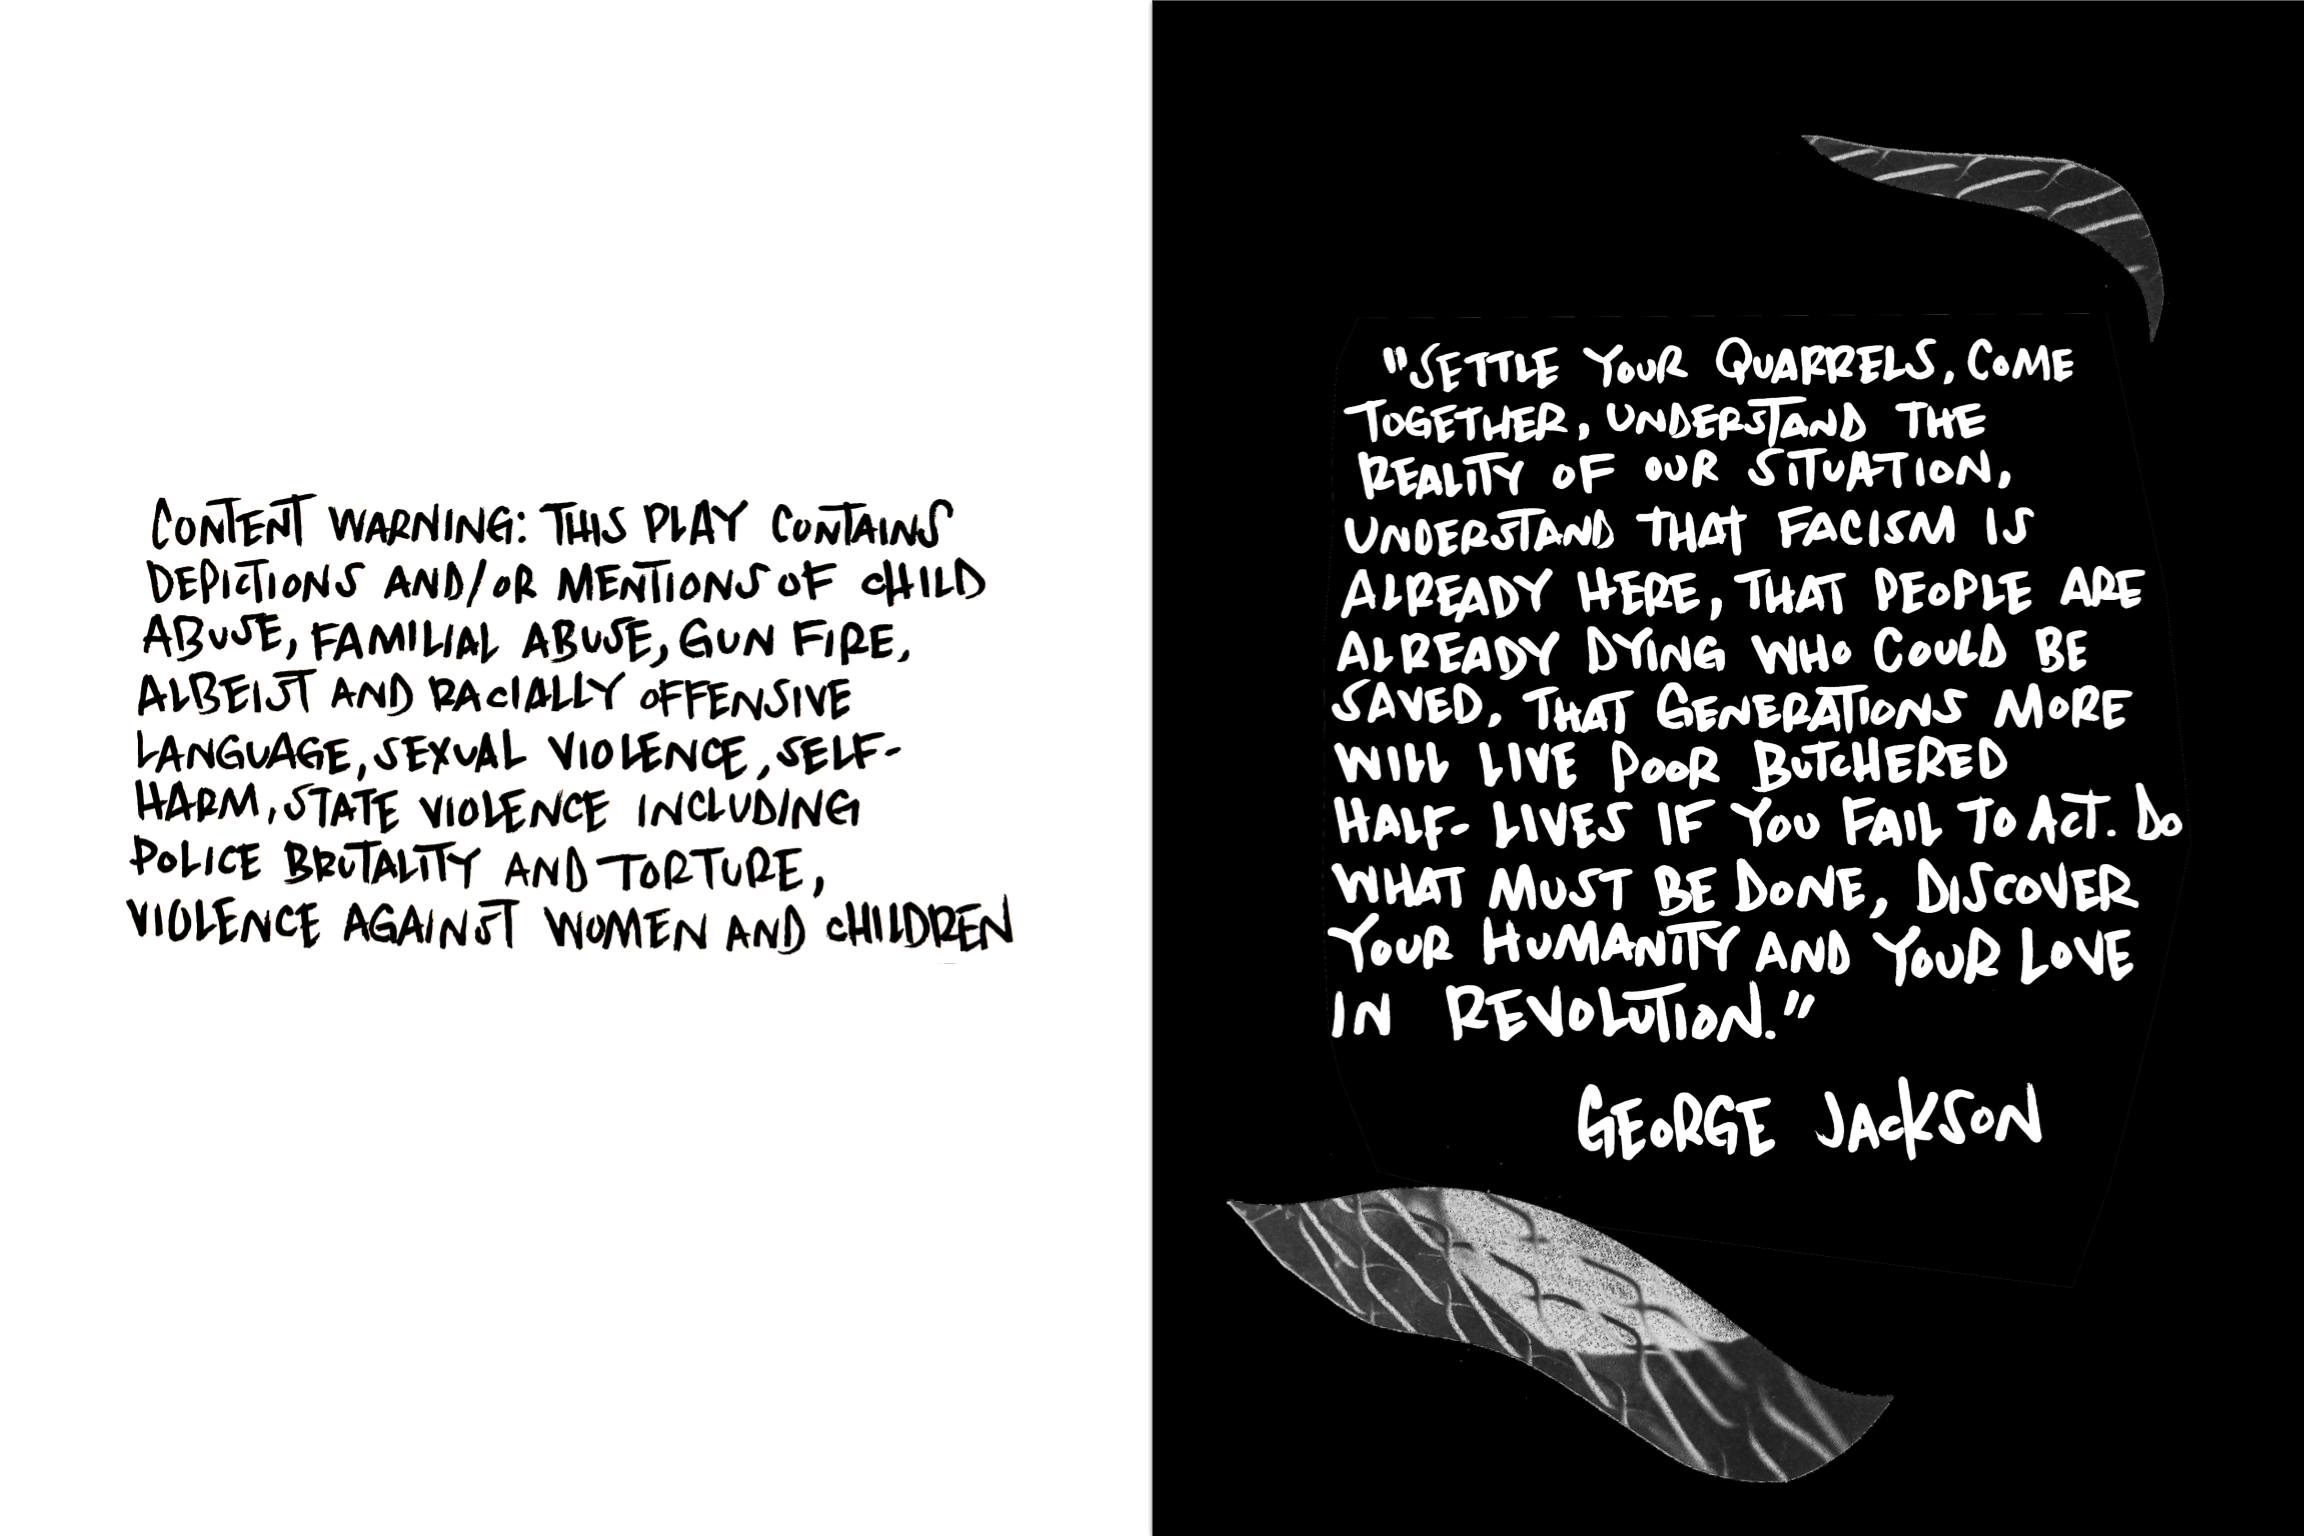 CONTENT WARNING: THIS PLAY CONTAINS
DEPICTIONS AND/OR MENTIONS OF CHILD
ABUSE, FAMILIAL ABUSE, GUN FIRE,
ALBEIST AND RACIALLY OFFENSIVE
LANGUAGE, SEXUAL VIOLENCE, SELF-
HARM, STATE VIOLENCE INCLUDING
POLICE BRUTALITY AND TORTURE,
VIOLENCE AGAINST WOMEN AND CHILDREN
"SETTLE YOUR QUARRELS, COME
TOGETHER, UNDERSTAND THE
REALITY OF OUR SITUATION,
UNDERSTAND THAT FACISM IS
ALREADY HERE, THAT PEOPLE ARE
ALREADY DYING WHO COULD BE
SAVED, THAT GENERATIONS MORE
WILL LIVE POOR BUTCHERED
HALF- LIVES IF YOU FAIL TO ACT. DO
WHAT MUST BE DONE, DISCOVER
YOUR HUMANITY AND YOUR LOVE
IN REVOLUTION."
GEORGE JACKSON